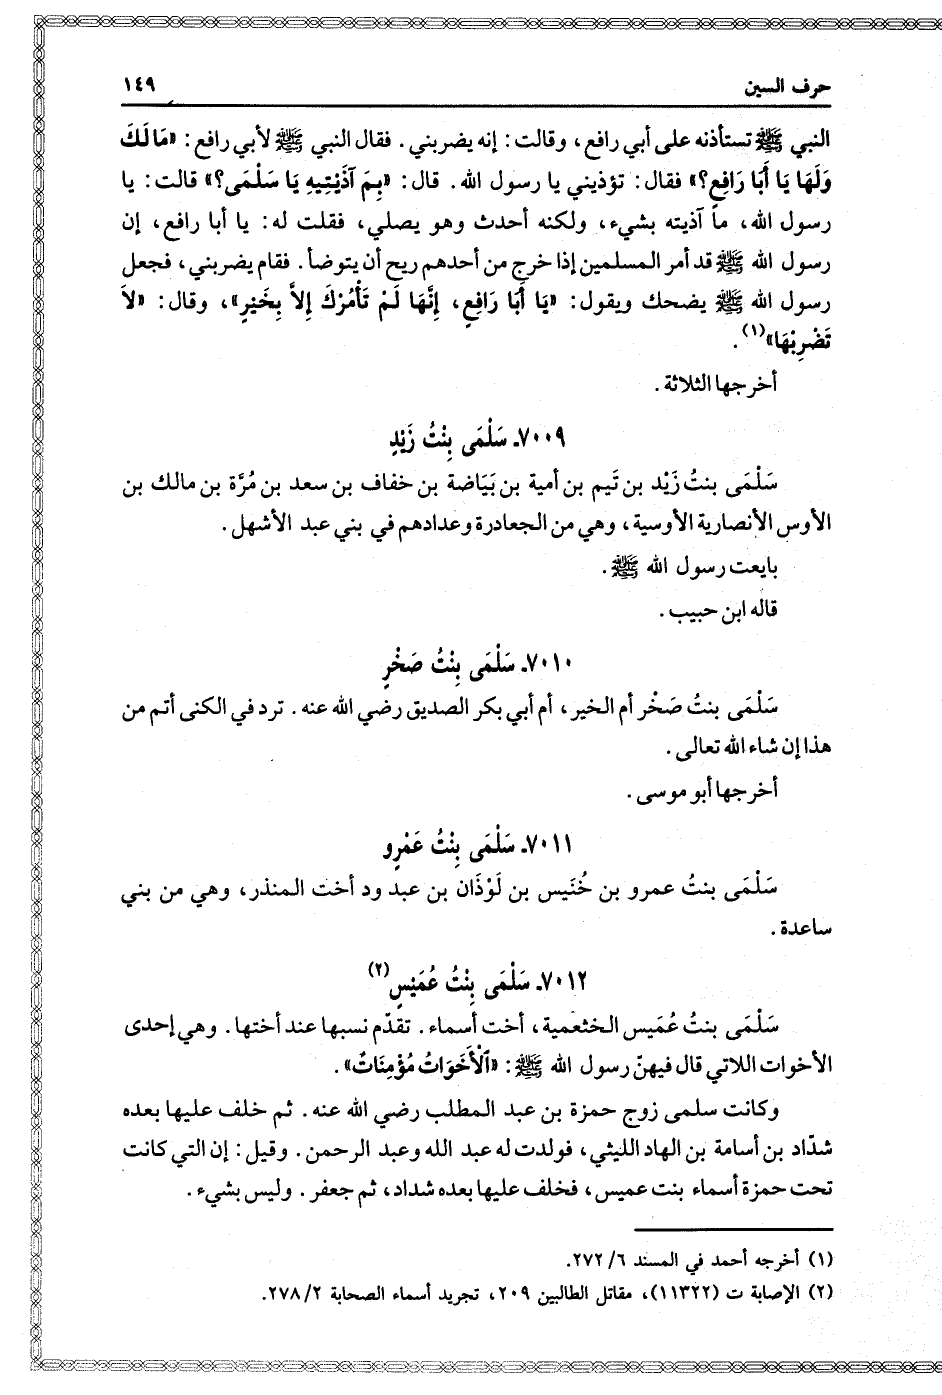 حرف السين ١٤٩
النبي ﷺ تستأذنه على أبي رافع، وقالت: إنه يضربني. فقال النبي ﷺ لأبي رافع: «مَا لَكَ
وَلَهَا يَا أَبَا رَافِعٍ؟» فقال: تؤذيني يا رسول الله. قال: «بِمَ آذَيْتِيهِ يَا سَلْمَى؟» قالت: يا
رسول الله، ما آذيته بشيء، ولكنه أحدث وهو يصلي، فقلت له: يا أبا رافع، إن
رسول الله ﷺ قد أمر المسلمين إذا خرج من أحدهم ريح أن يتوضأ. فقام يضربني، فجعل
رسول الله ﷺ يضحك ويقول: «يَا أَبَا رَافِعٍ، إِنَّهَا لَمْ تَأْمُرْكَ إِلاَّ بِخَيْرٍ»، وقال: «لاَ
تَضْرِبْهَا»(١).
أخرجها الثلاثة.
٧٠٠٩ـ سَلْمَى بِنْتُ زَيْدٍ
سَلْمَى بنتُ زَيْد بن تَيم بن أمية بن بَيَاضة بن خفاف بن سعد بن مُرَّة بن مالك بن
الأوس الأنصارية الأوسية، وهي من الجعادرة وعدادهم في بني عبد الأشهل.
بايعت رسول الله ﷺ.
قاله ابن حبيب.
٧٠١٠ـ سَلْمَى بِنْتُ صَخْرٍ
سَلْمَى بنتُ صَخْر أم الخير، أم أبي بكر الصديق رضي الله عنه. ترد في الكنى أتم من
هذا إن شاء الله تعالى.
أخرجها أبو موسى.
٧٠١١ـ سَلْمَى بِنْتُ عَمْرٍو
سَلْمَى بنتُ عمرو بن خُنَيس بن لَوْذَان بن عبد ود أخت المنذر، وهي من بني
ساعدة.
٧٠١٢ـ سَلْمَى بِنْتُ عُمَيْسٍ(٢)
سَلْمَى بنتُ عُمَيس الخثعمية، أخت أسماء. تقدّم نسبها عند أختها. وهي إحدى
الأخوات اللاتي قال فيهنّ رسول الله ﷺ: «ٱلْأَخَوَاتُ مُؤْمِنَاتٌ».
وكانت سلمى زوج حمزة بن عبد المطلب رضي الله عنه. ثم خلف عليها بعده
شدّاد بن أسامة بن الهاد الليثي، فولدت له عبد الله وعبد الرحمن. وقيل: إن التي كانت
تحت حمزة أسماء بنت عميس، فخلف عليها بعده شداد، ثم جعفر. وليس بشيء.
(١) أخرجه أحمد في المسند ٦/ ٢٧٢.
(٢) الإصابة ت (١١٣٢٢)، مقاتل الطالبين ٢٠٩، تجريد أسماء الصحابة ٢/ ٢٧٨.